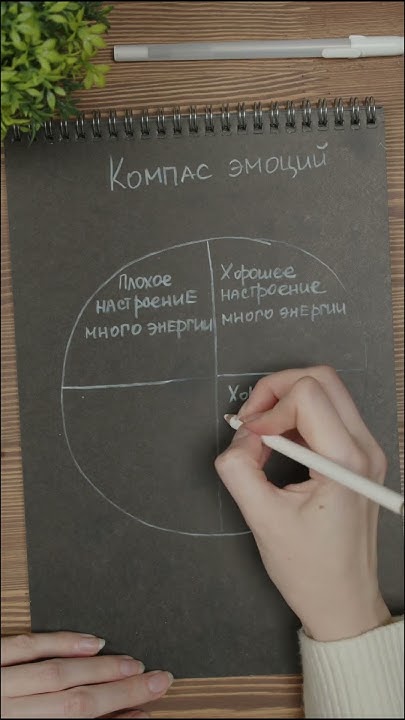 Компас эмоций
Плохое
настроение
много энергии
Хорошее
настроение
много энергии